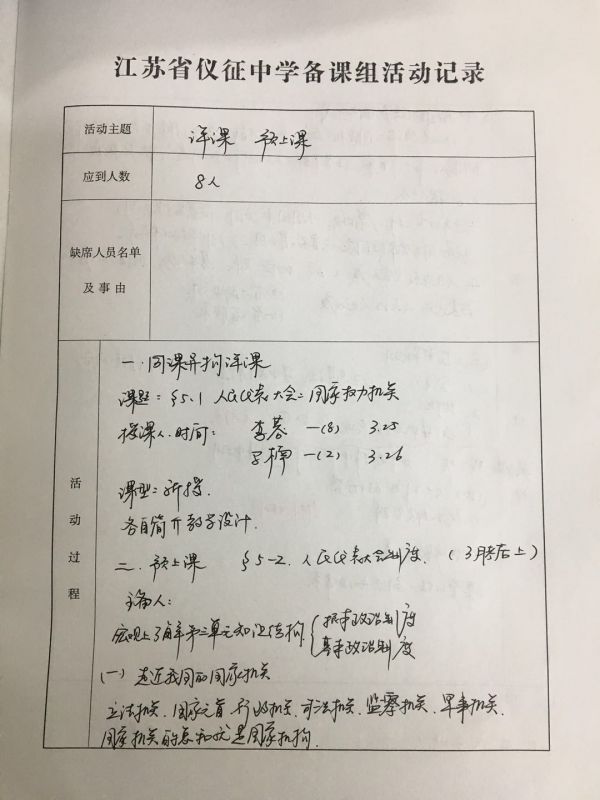 江苏省仪征中学备课组活动记录
活动主题
评课 预上课
应到人数
8人
缺席人员名单
及事由
活动过程
一.同课异构评课
课题:§5.1 人民代表大会:国家权力机关
授课人.时间: 李蓉 一(8) 3.25
一(2) 3.26
课型:新授.
各自简介教学设计.
二.预上课 §5-2.人民代表大会制度.(3月底后上)
主备人:
宏观上了解第三单元知识结构{根本政治制度
基本政治制度
(一)走近我国的国家机关
立法机关、国家元首、行政机关、司法机关、监察机关、军事机关、
国家机关的总和就是国家机构.